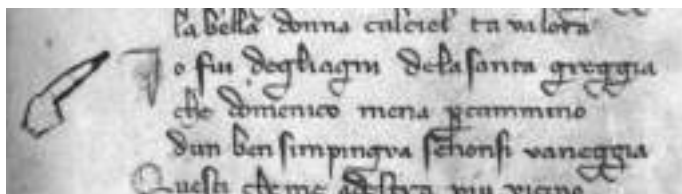 la bella donna calciel ta valora
o fui degliagni dela santa greggia
che domenico mena p cammino
dun ben simpingva senonsi vaneggia
Questi che me adestra piu vicino